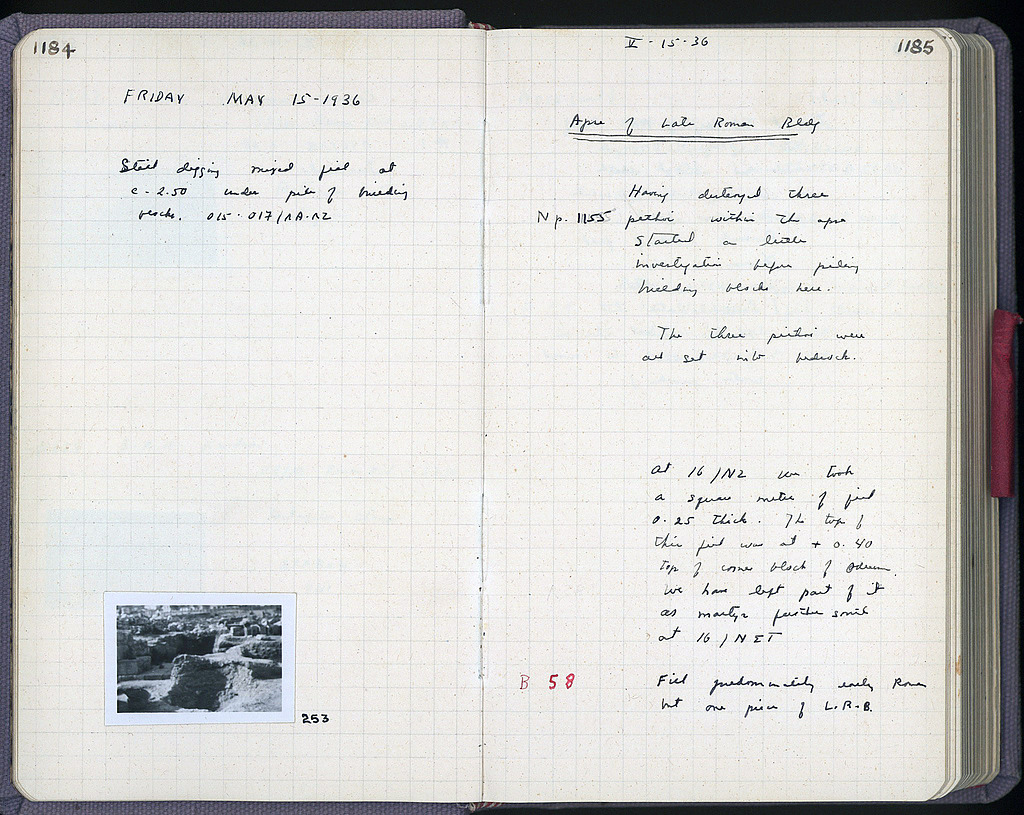 1184
FRIDAY MAY 15-1936
Start digging mixed fill at
c - 2.50 under pile of building
blocks. 015-017/ΛΑ-ΛΖ
253
V - 15 - 36
1185
Apse of Late Roman Bldg
Having destroyed three
N p. 1155 pithoi within the apse
Started a little
investigation before piling
building blocks here.
The three pithoi were
all set into bedrock.
At 16/ΝΖ we took
a square metre of fill
0.25 thick. The top of
this fill was at + 0.40
top of corner block of Odeum
We have left part of it
as martyr further south
at 16/ΝΣΤ
B 58
Fill predominately early Roman
but one piece of L.R-B.